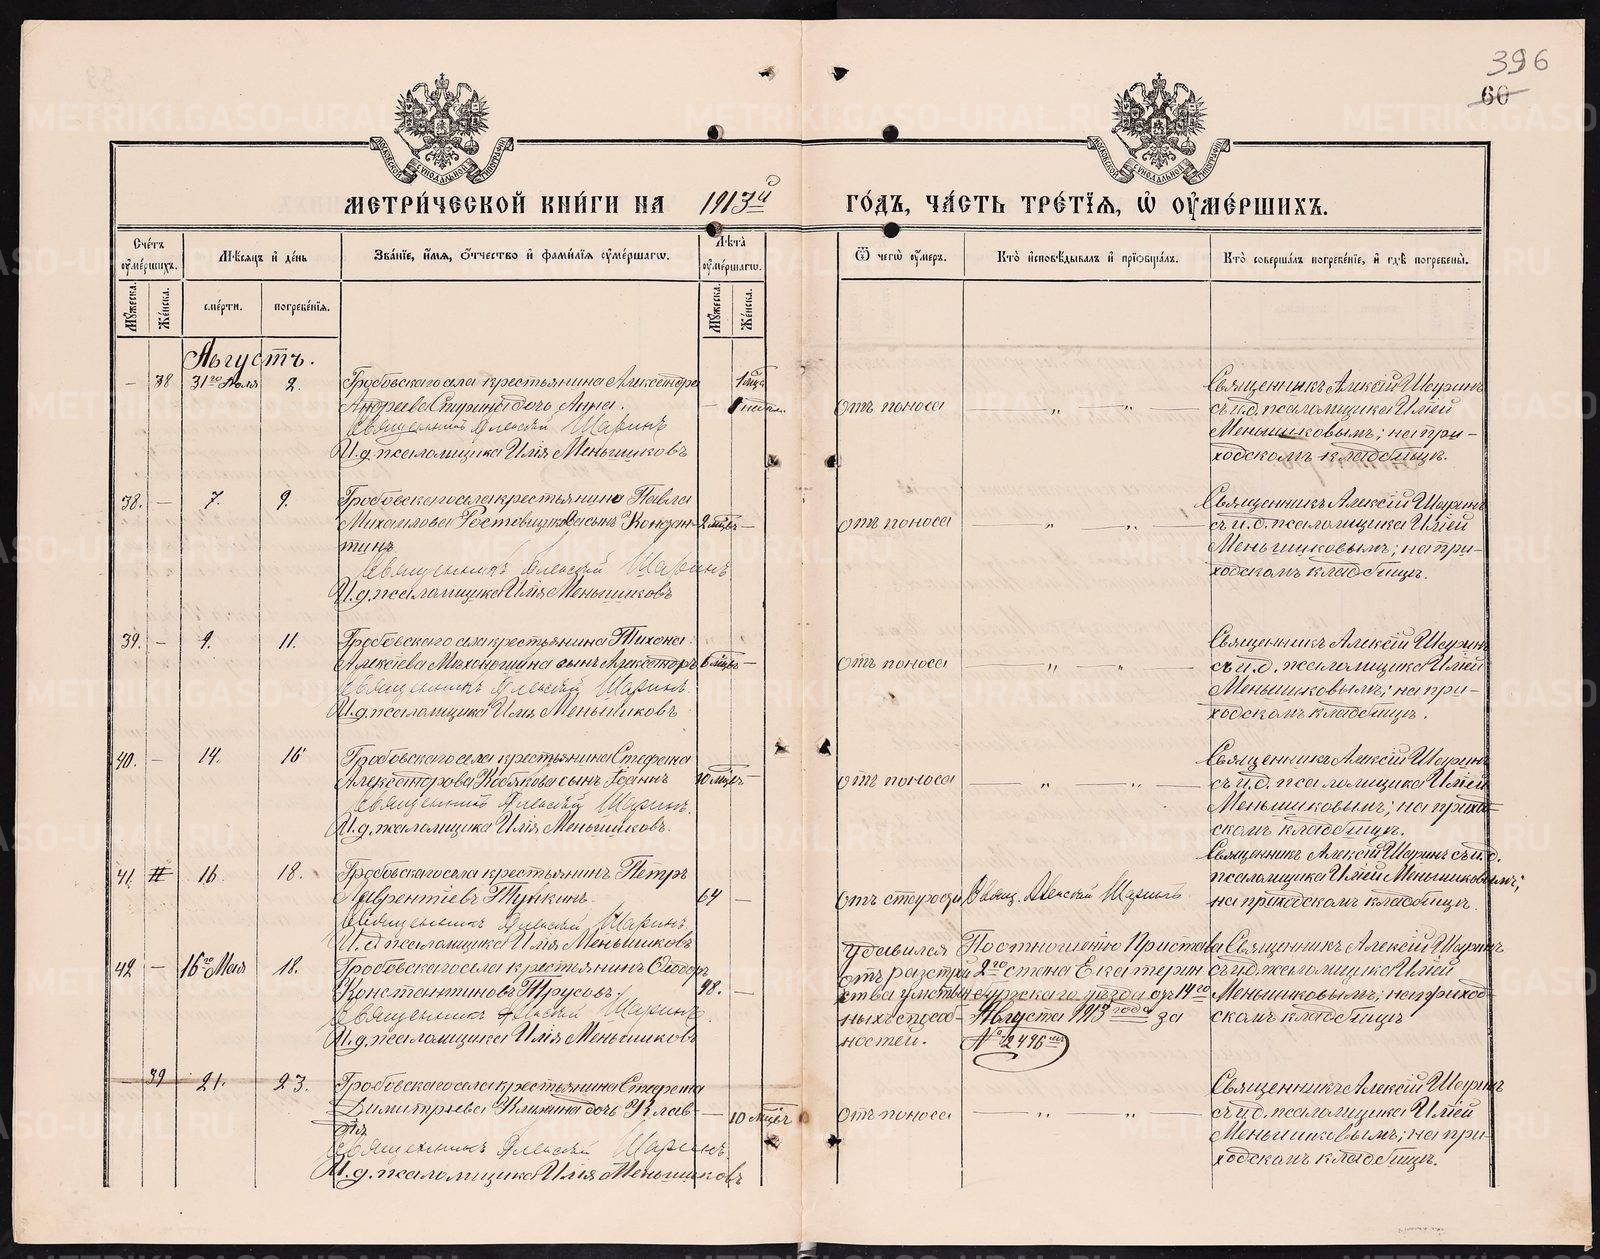 396
60
МЕТРИ́ЧЕСКОЙ КНИ́ГИ НА 1913й ГО́ДЪ, ЧА́СТЬ ТРЕ́ТЇѦ, Ѡ ОУМЕ́РШИХЪ.
Сче́тъ оуме́ршихъ.
Мѣ́сяцъ и де́нь
Зва́нїе, и́мя, о́тчество и фами́лїя оуме́ршагѡ.
Лѣта̀ оуме́ршагѡ.
Ѿ чегѡ̀ оу́меръ.
Кто̀ исповѣ́дывалъ и прїобща́лъ.
Кто̀ соверша́лъ погребе́нїе, и гдѣ̀ погребены̀.
Мꙋ́жеска.
Же́нска.
сме́рти.
погребе́нїя.
Мꙋ́жеска.
Же́нска.
Августъ.
— 38 31го Іюля 2. Гробовскаго села крестьянина Александра 1 мца
Андреева дочь Анна. — 1 недел.
Священникъ Алексѣй Шаринъ
И.д. псаломщика Илія Меньшиковъ
Отъ поноса — „ — „ —
Священникъ Алексій Шаринъ
съ и.д. псаломщика Иліей
Меньшиковымъ; на при-
ходскомъ кладбищѣ.
38. — 7. 9. Гробовскаго села крестьянина Павла
Михаилова Ростовщикова сынъ Констан- 2 мцев —
тинъ
Священникъ Алексѣй Шаринъ
И.д. псаломщика Илія Меньшиковъ
Отъ поноса „ „ —
Священникъ Алексій Шаринъ
съ и.д. псаломщика Иліей
Меньшиковымъ; на при-
ходскомъ кладбищѣ.
39. — 9. 11. Гробовскаго села крестьянина Тихона
Алексіева сынъ Александръ 6 мцев —
Священникъ Алексѣй Шаринъ.
И.д. псаломщика Илія Меньшиковъ
Отъ поноса — „ — „ —
Священникъ Алексій Шаринъ
съ и.д. псаломщика Иліей
Меньшиковымъ; на при-
ходскомъ кладбищѣ.
40. — 14. 16 Гробовскаго села крестьянина Стефана
Александрова Кобякова сынъ Іоаннъ 10 мцев —
Священникъ Алексѣй Шаринъ.
И.д. псаломщика Илія Меньшиковъ.
Отъ поноса — „ — „ —
Священникъ Алексій Шаринъ
съ и.д. псаломщика Иліей
Меньшиковымъ; на приход-
скомъ кладбищѣ.
41. 16 18. Гробовскаго села крестьянинъ Петръ
Лаврентіевъ 64 —
Священникъ Алексѣй Шаринъ
И.д. псаломщика Илія Меньшиковъ
Отъ старости Свящ. Алексѣй Шаринъ
Священникъ Алексій Шаринъ съ и.д.
псаломщика Иліей Меньшиковымъ;
на приходскомъ кладбищѣ.
42 — 16го Мая 18. Гробовскаго села крестьянинъ Ѳеодоръ
Константиновъ Трусовъ. 48. —
Священникъ Алексѣй Шаринъ.
И.д. псаломщика Илія Меньшиковъ
Удавился
отъ разстрой
ства умствен
ныхъ способ-
ностей.
По отношенію Пристава
2го стана Екатерин
бургскаго уѣзда отъ 14го
Августа 1913 года за
№ 2496мъ
Священникъ Алексій Шаринъ
съ и.д. псаломщика Иліей
Меньшиковымъ; на приход-
скомъ кладбищѣ
— 39 21. 23. Гробовскаго села крестьянина Стефана
Димитріева дочь Клав- — 10 мцев
дія
Священникъ Алексѣй Шаринъ
И.д. псаломщика Илія Меньшиковъ
Отъ поноса — „ — „ —
Священникъ Алексій Шаринъ
съ и.д. псаломщика Иліей
Меньшиковымъ; на при-
ходскомъ кладбищѣ.
METRIKI.GASO-URAL.RU